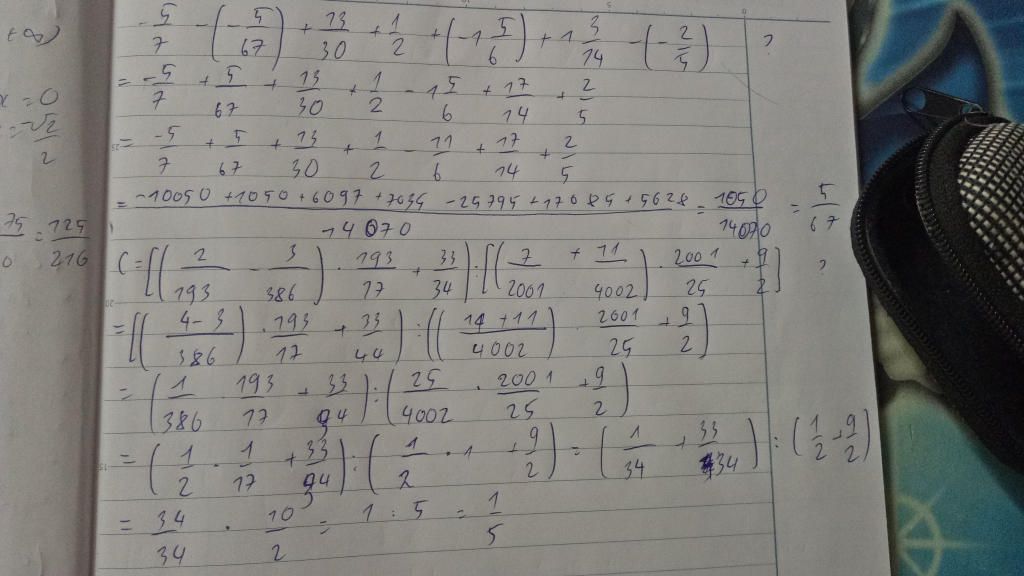 +∞)
x = 0
= -√2/2
75/ 0 = 125/216
-5/7 - (-5/67) + 13/30 + 1/2 + (-1 5/6) + 1 3/14 - (-2/5) ?
= -5/7 + 5/67 + 13/30 + 1/2 - 1 5/6 + 17/14 + 2/5
= -5/7 + 5/67 + 13/30 + 1/2 - 11/6 + 17/14 + 2/5
= (-10050 + 1050 + 6097 + 7035 - 25795 + 17085 + 5628)/14070 = 1050/14070 = 5/67
C = [((2/193 - 3/386) · 193/17 + 33/34) : [((7/2001 + 11/4002) · 2001/25 + 9/2] ?
= [((4-3)/386) · 193/17 + 33/44) : (((14+11)/4002) · 2001/25 + 9/2)]
= (1/386 · 193/17 + 33/34) : (25/4002 · 2001/25 + 9/2)
= (1/2 · 1/17 + 33/34) : (1/2 · 1 + 9/2) = (1/34 + 33/34) : (1/2 + 9/2)
= 34/34 · 10/2 = 1 : 5 = 1/5